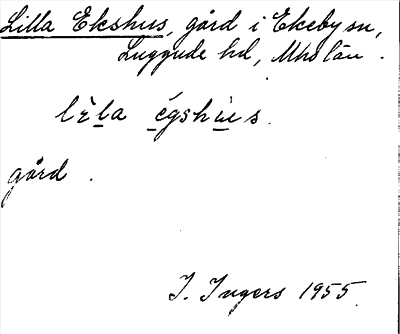 Lilla Ekshus, gård i Ekeby sn,
Luggude hd, Mhs län.
lèla égshùs.
gård.
I. Ingers 1955.